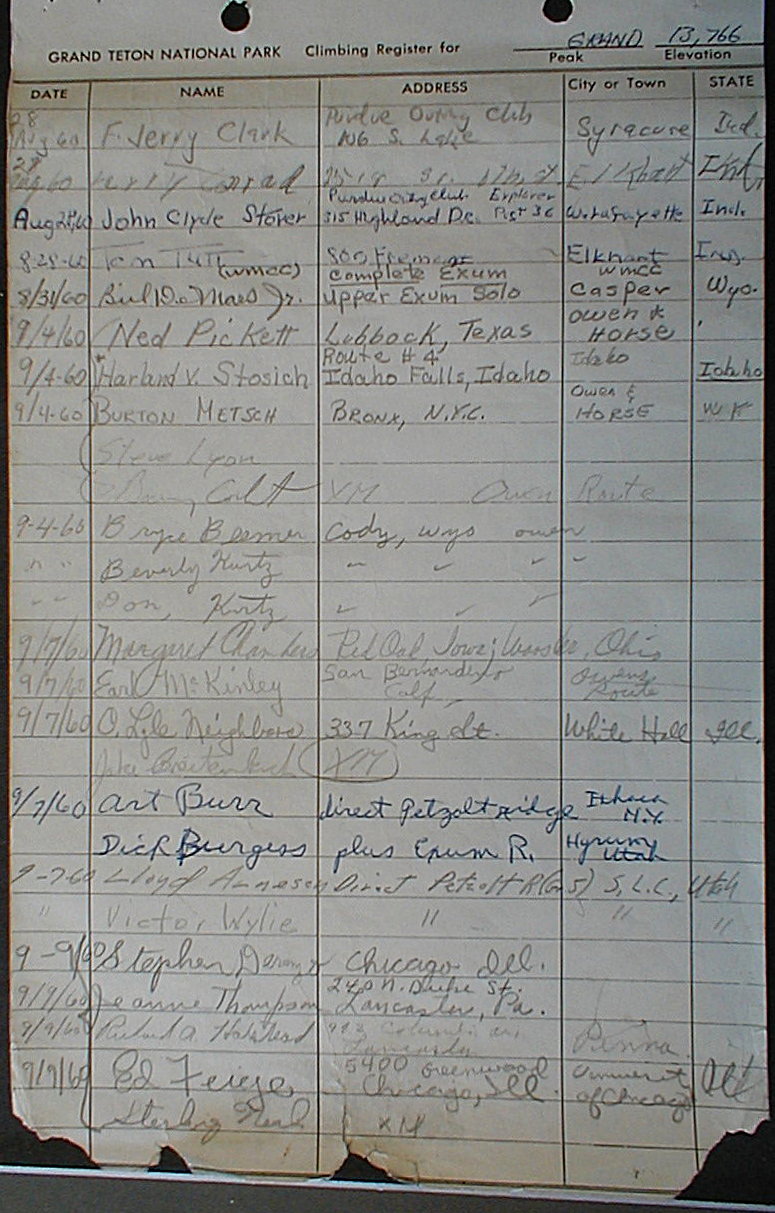 GRAND 13,766
GRAND TETON NATIONAL PARK Climbing Register for Peak Elevation
DATE NAME ADDRESS City or Town STATE
28 Purdue Outing Club
Aug 60 F. Jerry Clark 106 S. Syracuse Ind.
60 Elkhart
Purdue Outing Club Explorer
Aug 60 John Clyde Stover 315 Highland Dr. Post 36 W. Lafayette Ind.
8-28-60 Tom 800 Elkhart Ind.
(WMCC) Complete Exum WMCC
8/31/60 Bill DeMaes Jr. Upper Exum Solo Casper Wyo.
Owen &
9/4/60 Ned Pickett Lubbock, Texas HORSE
Route # 4 Idaho
9/4-60 Harland V. Stosich Idaho Falls, Idaho Idaho
Owen &
9/4-60 BURTON METSCH BRONX, N.Y.C. HORSE
Steve Lyon
XM Owen Route
9-4-60 Bryce Beemer Cody, Wyo owen
" " Beverly Kurtz
" " Don, Kurtz
9/7/60 Margaret Chambers Red Oak Iowa; Wooster, Ohio
San Bernardino Owens
9/7/60 Earl McKinley Calf, Route
9/7/60 O. Lyle Neighbors 337 King St. White Hall Ill.
Jake Breitenbach XM
9/7/60 Art Burr direct Petzolt ridge Ithaca N.Y.
Dick Burgess plus Exum R. Hyrum, Utah
9-7-60 Lloyd Direct Petzolt R S.L.C., Utah
" Victor Wylie " " "
9-9/60 Stephen Chicago Ill.
240 N. Duke St.
9/9/60 Jeanne Thompson Lancaster, Pa.
9/9/60 Richard A. Columbia av.
Lancaster Penna.
5400 Greenwood University
9/9/60 Ed Chicago, Ill. of Chicago Ill
Sterling Neal XM